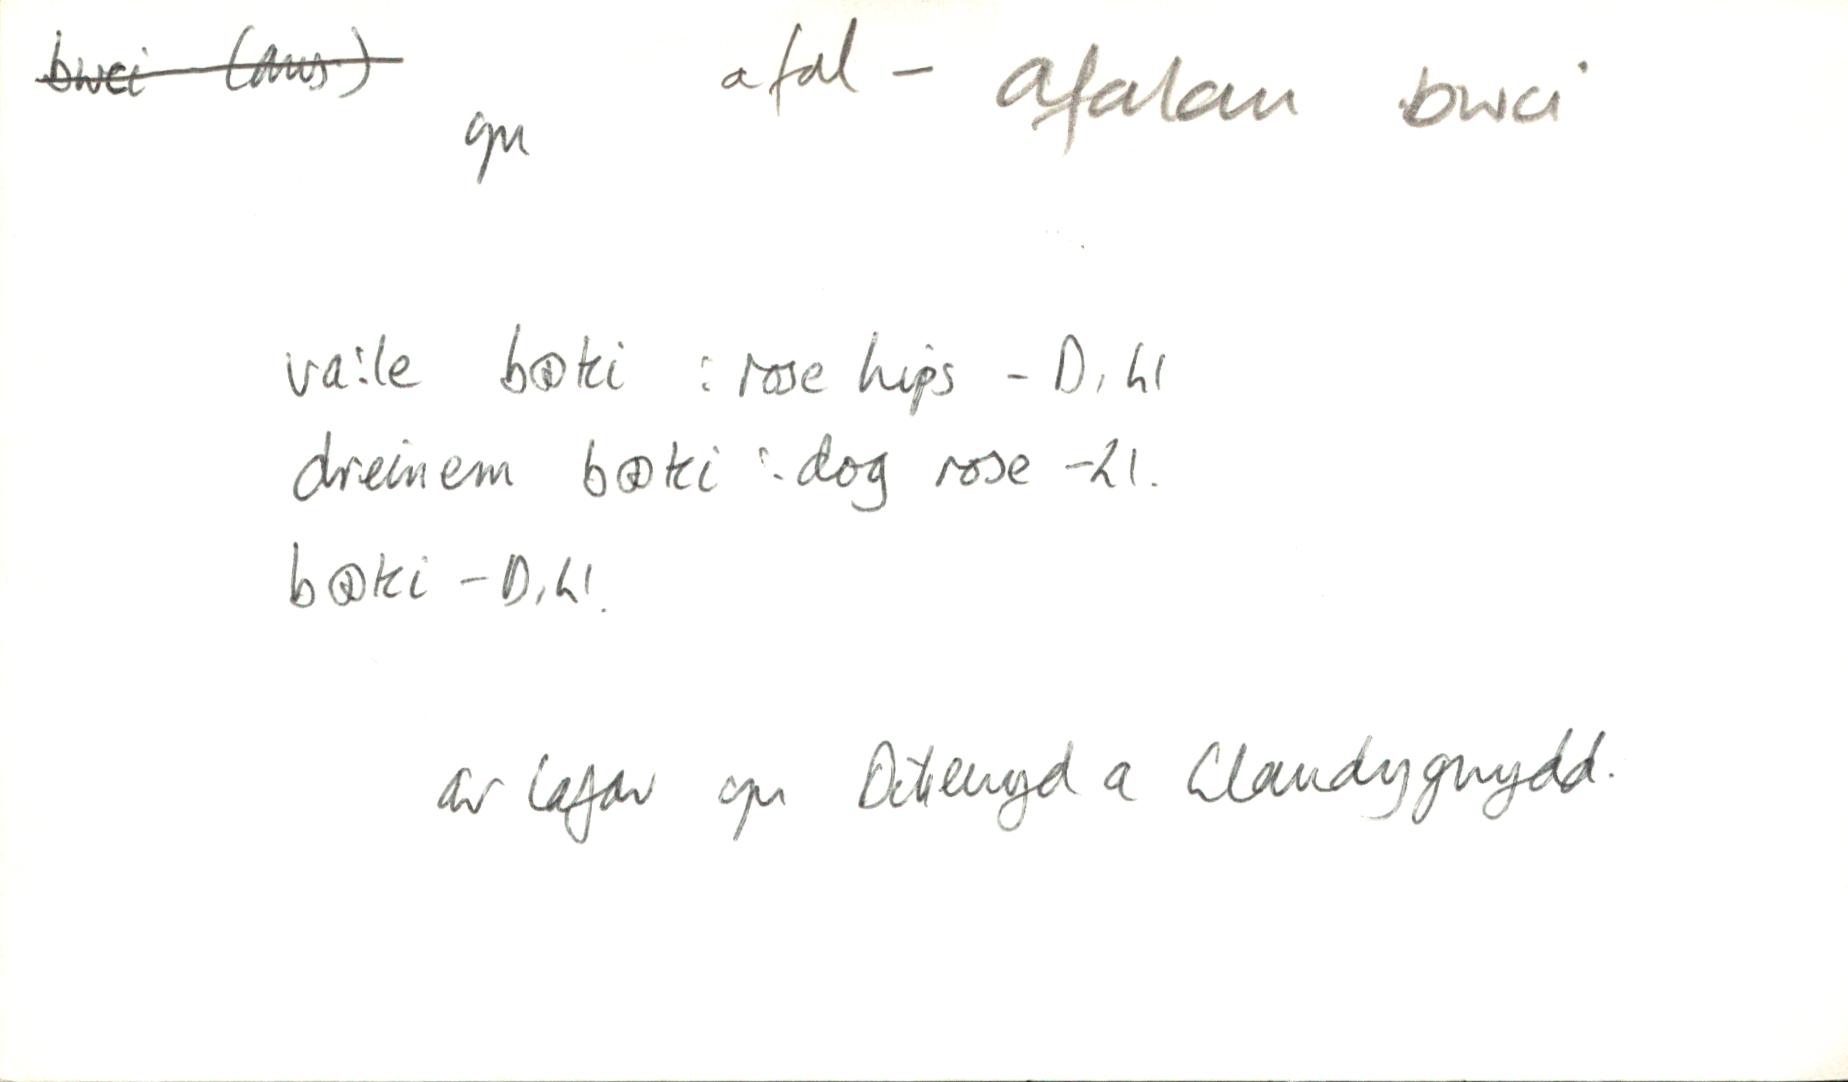 bwci (ans.) afal - afalau bwci
gn
va:le bʊki : rose hips - D, Ll
dreinem bʊki : dog rose - Ll.
bʊki - D, Ll.
ar lafar gn a Llandygwydd.